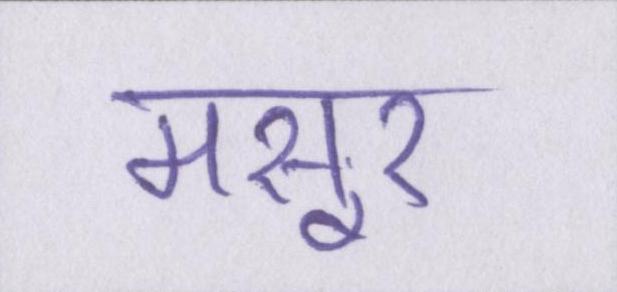 मसूर